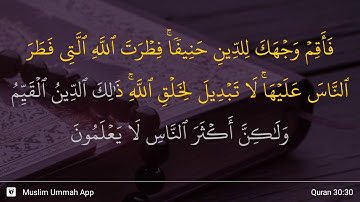 فَأَقِمۡ وَجۡهَكَ لِلدِّينِ حَنِيفٗاۚ فِطۡرَتَ ٱللَّهِ ٱلَّتِي فَطَرَ
ٱلنَّاسَ عَلَيۡهَاۚ لَا تَبۡدِيلَ لِخَلۡقِ ٱللَّهِۚ ذَٰلِكَ ٱلدِّينُ ٱلۡقَيِّمُ
وَلَٰكِنَّ أَكۡثَرَ ٱلنَّاسِ لَا يَعۡلَمُونَ
Muslim Ummah App
Quran 30:30